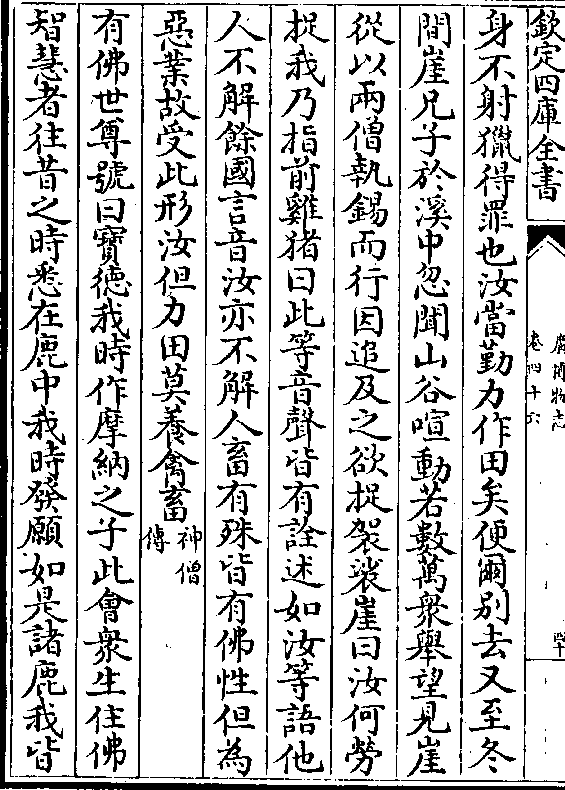 欽定四庫全書
廣博物志
卷四十六
身不射獵得罪也汝當勤力作田矣便爾別去又至冬
間崖兄子於溪中忽聞山谷喧動若數萬衆舉望見崖
從以兩僧執錫而行因追及之欲捉袈裟崖曰汝何勞
捉我乃指前雞猪曰此等音聲皆有詮述如汝等語他
人不解餘國言音汝亦不解人畜有殊皆有佛性但為
惡業故受此形汝但力田莫養禽畜神僧傳
有佛世尊號曰寳德我時作摩納之子此會衆生住佛
智慧者往昔之時悉在鹿中我時發願如是諸鹿我皆